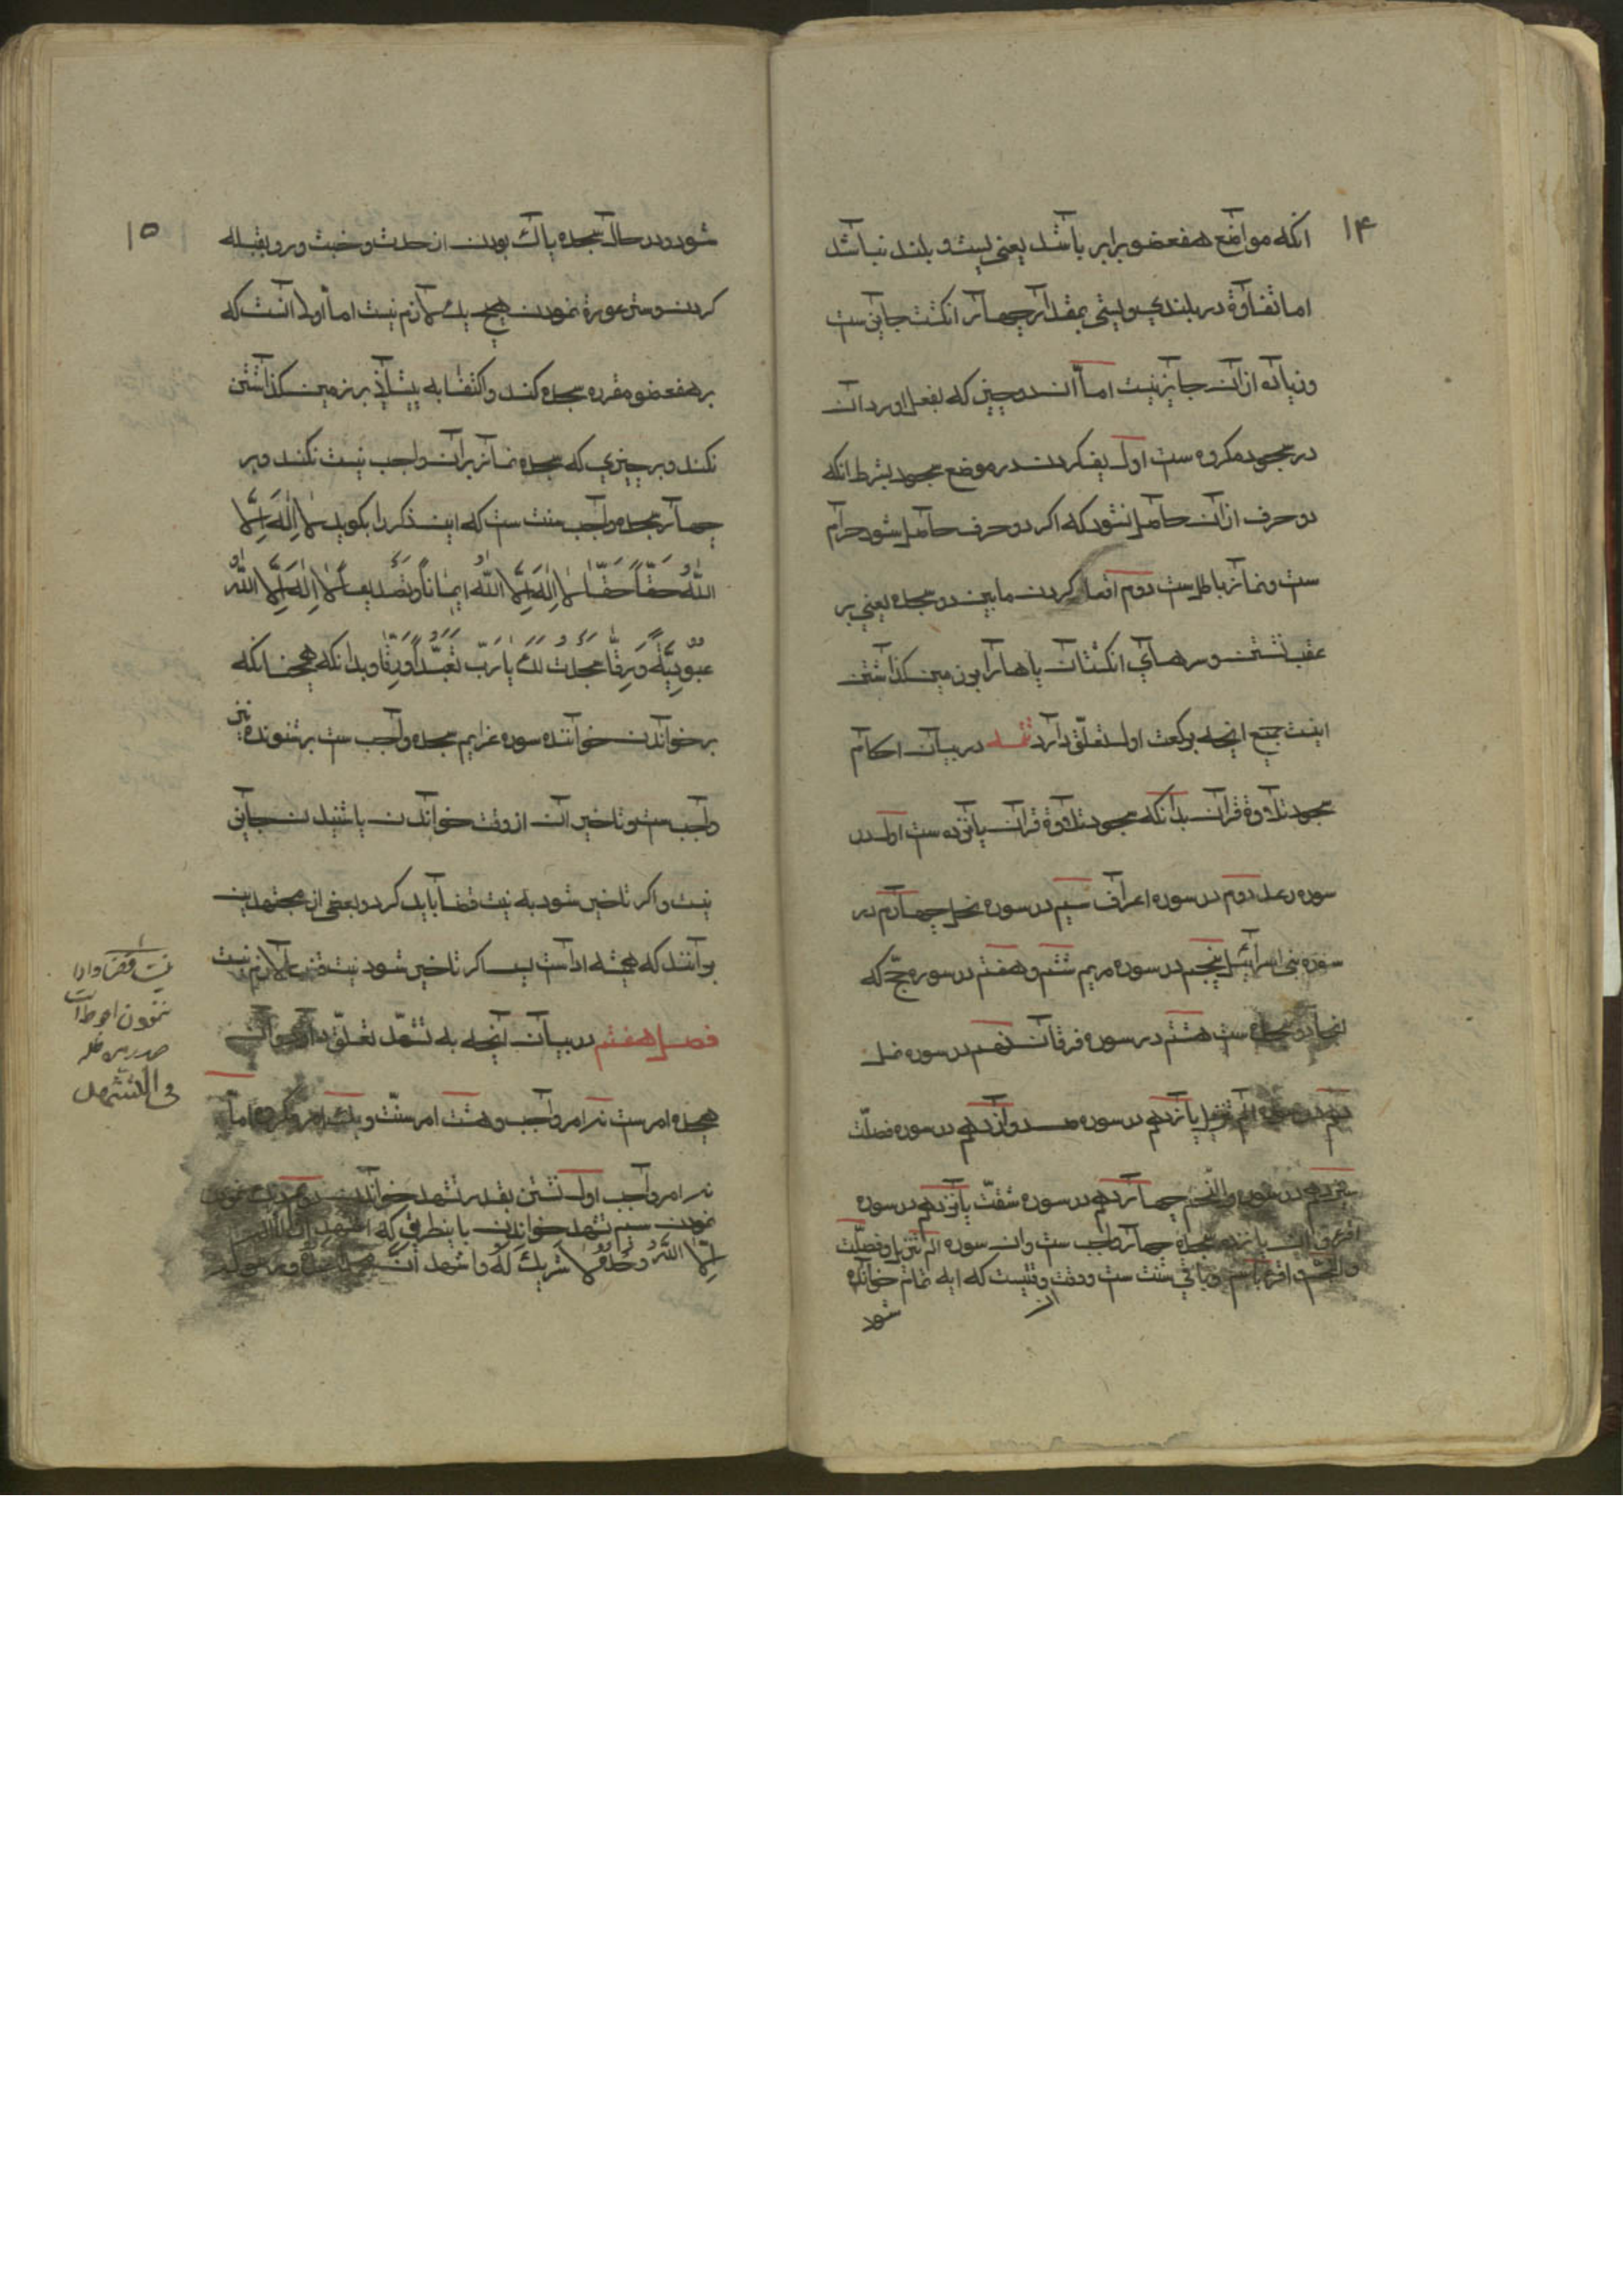 ۱۴
انکه مواضع هفعضو برابر باشد یعنی پست و بلند نباشد
اما تفاوة در بلندي و پستی بمقدار چهار انکشت جایز ست
و زیاده ازان جایز نیست اما ان دو چیز که بفعل اوردان
در سجود مکروه ست اول پف کردن در موضع سجود بشرط انکه
دو حرف ازان حاصل نشود که اکر دو حرف حاصل شود حرام
ست و نماز باطل ست دوم اقعا کردن مابین دو سجده یعنی بر
عقب نشستن و سرهاي انکشتان پاها را بر زمین کذاشتن
اینست جمیع انچه برکعت اول تعلّق دارد تتمه در بیان احکام
سجود تلاوة قران بدانکه سجود تلاوة قران پانزده ست اول در
سوره رعد دوم در سوره اعراف سیم در سوره نحل چهارم در
سوره بنی اسرائیل پنجم در سوره مریم ششم و هفتم در سوره حجّ که
انجا دو سجده ست هشتم در سوره فرقان نهم در سوره نمل
دهم در سوره الم تنزیل یازدهم در سوره ص دوازدهم در سوره فصلّت
سیزدهم در سوره والنّجم چهاردهم در سوره شقّت پانزدهم در سوره
اقرء و از این پانزده سجده چهار واجب ست وان سوره الم تنزیل و فصلّت
والنّجم و اقرء باسم و باقي سنت ست و وقت وقتیست که ایه تمام خوانده
ان
شود
۱۵
شود و در حال سجده پاك بودن از حدث و خبث و رو بقبله
کردن و ستر عورة نمودن هیچ یك لازم نیست اما اولا انست که
بر هفعضو مقرره سجده کند و اکتفا به پیشانی بر زمین کذاشتن
نکند و بر چیزي که سجده نماز بران واجب نیست نکند و بر
چهار سجده واجب سنت ست که این ذکر را بکوید لا اِلٰهَ اِلَّا
اللّٰهُ حَقّاً حَقّاً لا اِلٰهَ اِلَّا اللّٰهُ ایماناً وتَصْدیقاً لا اِلٰهَ اِلَّا اللّٰهُ
عُبُودِیَّةً وَرِقّاً سَجَدْتُ لَكَ یا رَبِّ تَعَبُّداً وَرِقّاً و بدانکه همچنانکه
بر خواندن خواننده سوره عزایم سجده واجب ست بر شنونده نیز
واجب ست و تاخیر ان از وقت خواندن یا شنیدن جایز
نیست و اکر تاخیر شود به نیت قضا باید کرد و بعضی از مجتهدین
برانند که همیشه اداست پس اکر تاخیر شود نیت قضا لازم نیست
فصل هفتم در بیان انچه به تشهّد تعلّق دارد و ان
هجده امر ست نه امر واجب و هشت امر سنّت و یك امر مکروه اما
نه امر واجب اول نشستن بقدر تشهد خواندن دوم
نمودن سیم تشهد خواندن باینطریق که اشهد ان لا اله
اِلَّا اللّٰهُ وحدَهُ لا شریكَ لَهُ واشهد انَّ محمداً عبده و رسوله
نیت قضا و ادا
ننمودن احوط است
فی التشهد